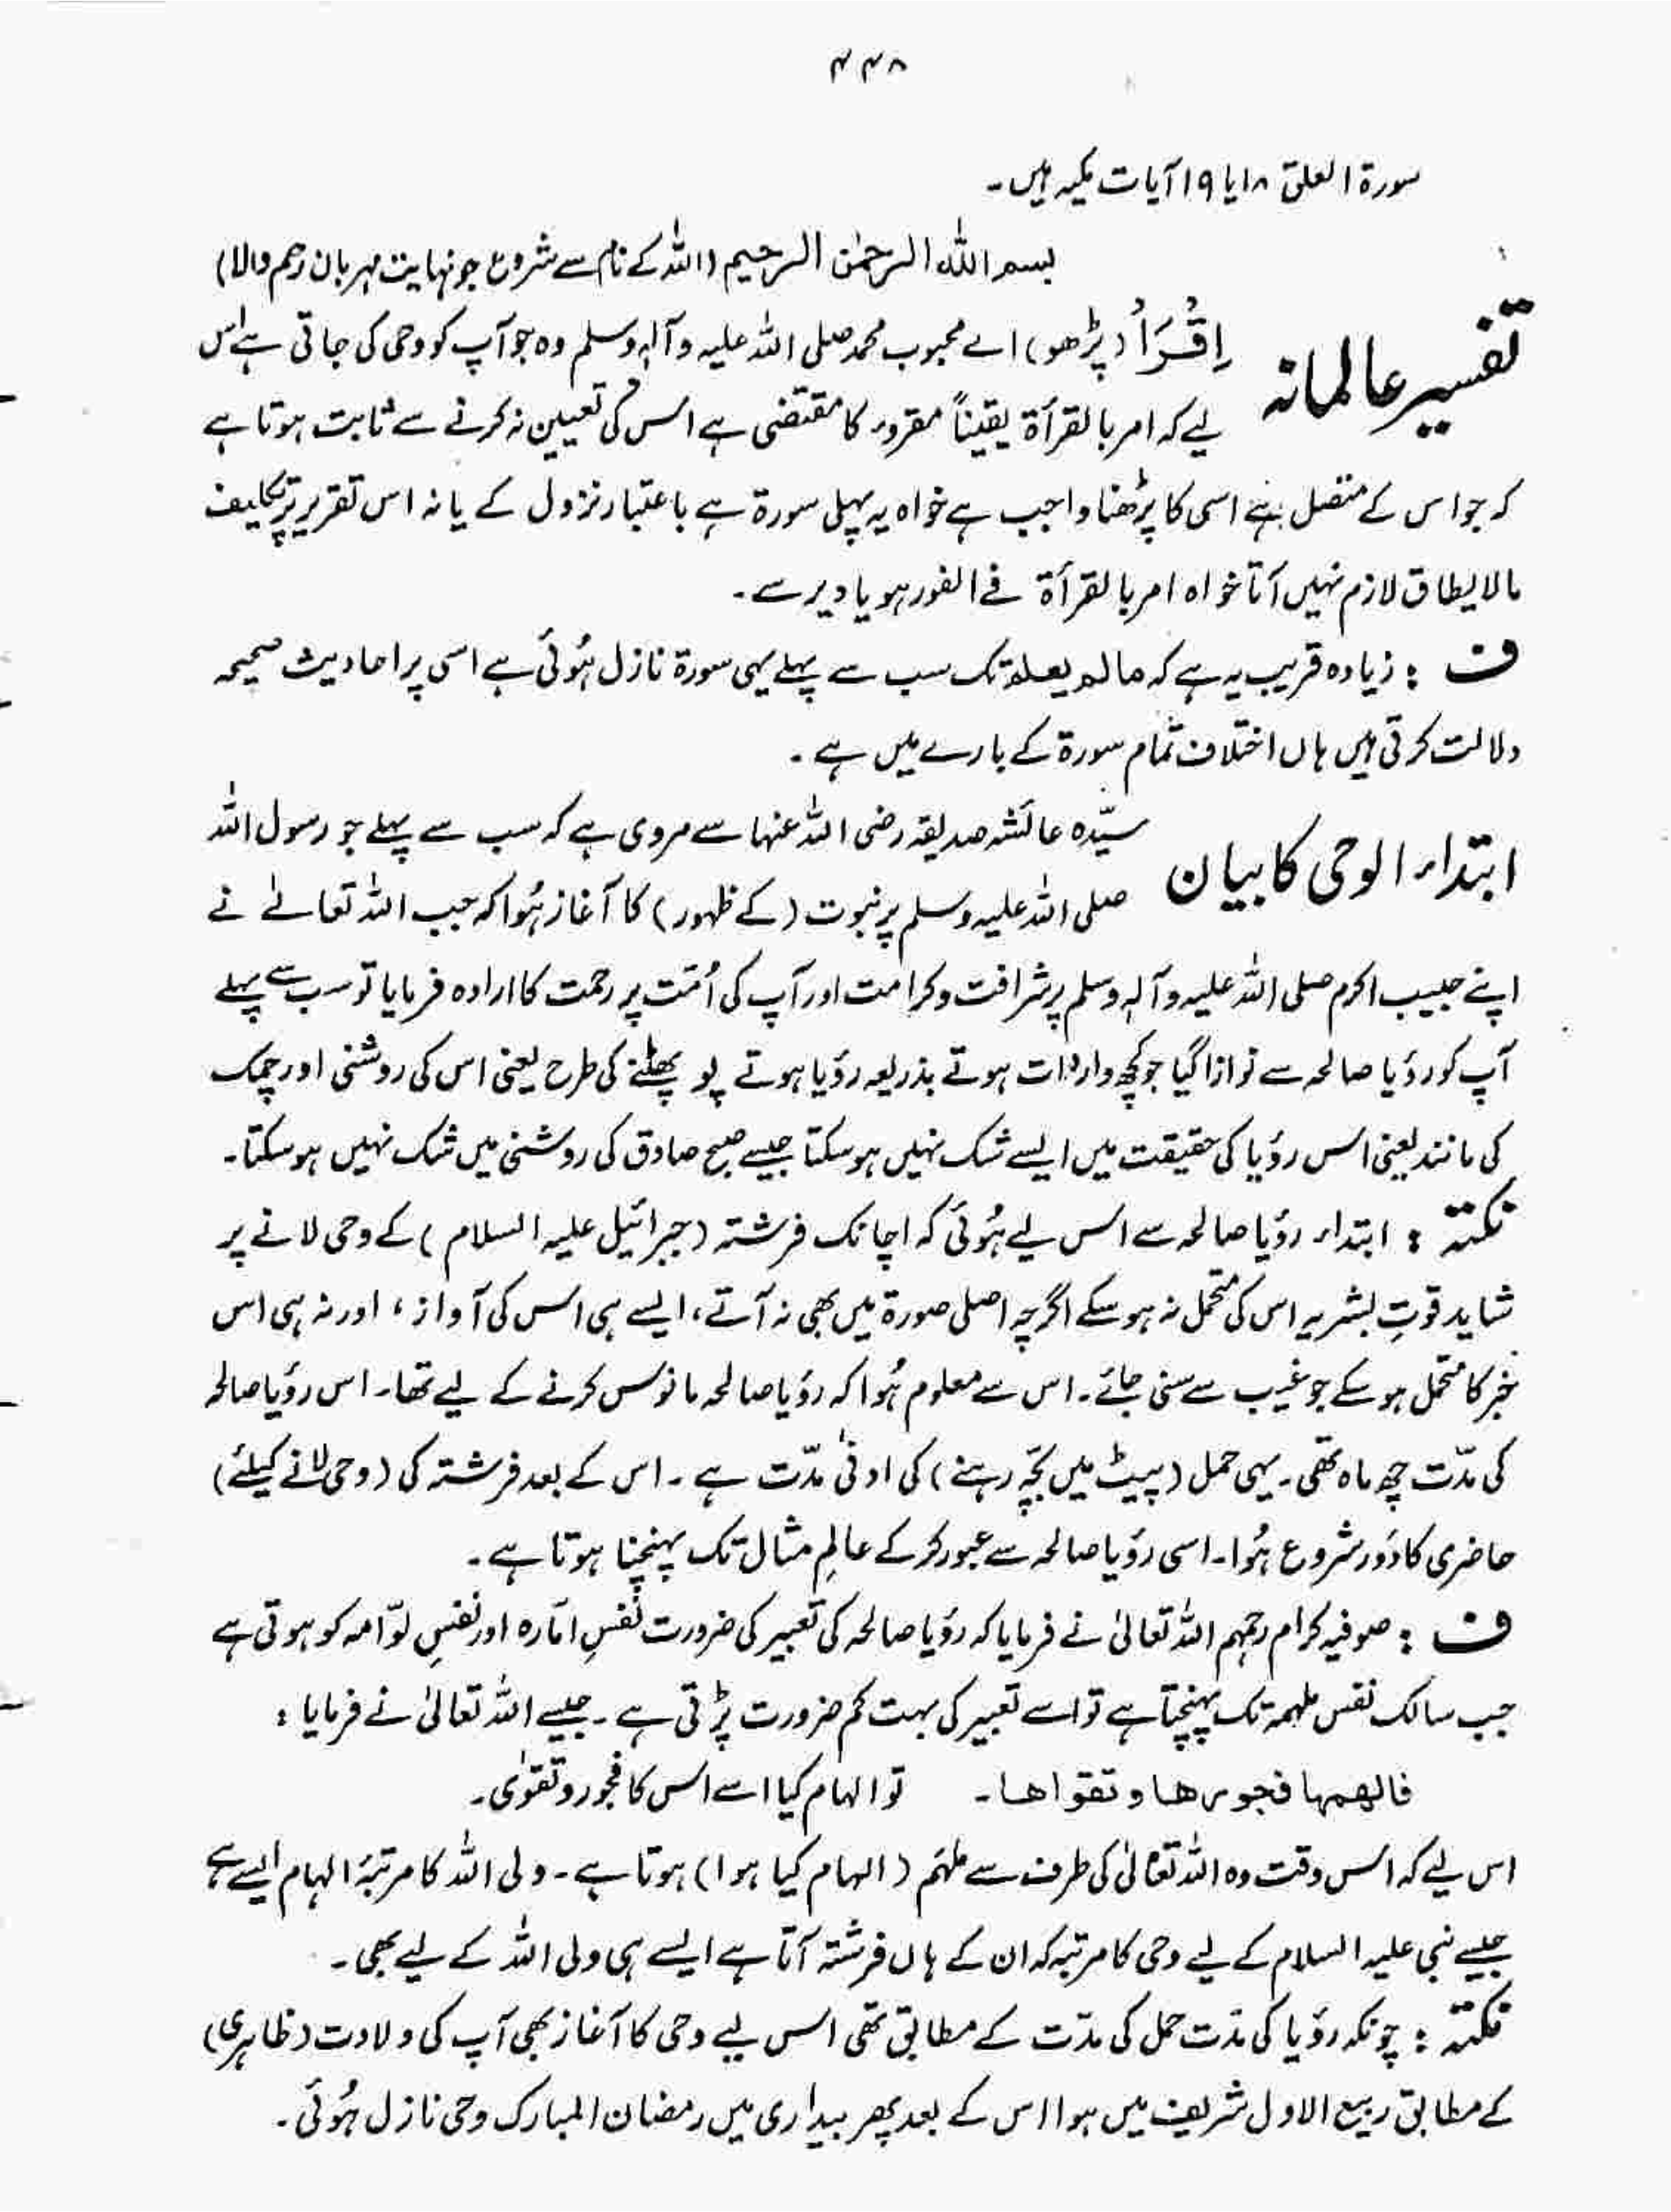 ۴۴۸
سورۃ العلق ۱۸ یا ۱۹ آیات مکیہ ہیں۔
بسم اللہ الرحمٰن الرحیم (اللہ کے نام سے شروع جو نہایت مہربان رحم والا)
تفسیر عالمانہ اِقْرَاْ (پڑھو) اے محبوب محمد صلی اللہ علیہ وآلہٖ وسلم وہ جو آپ کو وحی کی جاتی ہے اس
لیے کہ امر بالقرأۃ یقیناً مقروء کا مقتضی ہے اس کی تعیین نہ کرنے سے ثابت ہوتا ہے
کہ جو اس کے متصل ہے اسی کا پڑھنا واجب ہے خواہ یہ پہلی سورۃ ہے باعتبار نزول کے یا نہ اس تقریر پر تکلیف
مالایطاق لازم نہیں آتا خواہ امر بالقرأۃ فی الفور ہو یا دیر سے۔
ف : زیادہ قریب یہ ہے کہ مالم یعلم تک سب سے پہلے یہی سورۃ نازل ہُوئی ہے اسی پر احادیث صحیحہ
دلالت کرتی ہیں ہاں اختلاف تمام سورۃ کے بارے میں ہے۔
ابتداء الوحی کا بیان سیّدہ عائشہ صدیقہ رضی اللہ عنہا سے مروی ہے کہ سب سے پہلے جو رسول اللہ
صلی اللہ علیہ وسلم پر نبوت (کے ظہور) کا آغاز ہُوا کہ جب اللہ تعالےٰ نے
اپنے حبیب اکرم صلی اللہ علیہ وآلہٖ وسلم پر شرافت و کرامت اور آپ کی اُمّت پر رحمت کا ارادہ فرمایا تو سب سے پہلے
آپ کو رؤیا صالحہ سے نوازا گیا جو کچھ واردات ہوتے بذریعہ رؤیا ہوتے پو پھٹنے کی طرح یعنی اس کی روشنی اور چمک
کی مانند یعنی اس رؤیا کی حقیقت میں ایسے شک نہیں ہو سکتا جیسے صبح صادق کی روشنی میں شک نہیں ہو سکتا۔
نکتہ : ابتداء رؤیا صالحہ سے اس لیے ہُوئی کہ اچانک فرشتہ (جبرائیل علیہ السلام) کے وحی لانے پر
شاید قوتِ بشریہ اس کی متحمل نہ ہو سکے اگرچہ اصلی صورۃ میں بھی نہ آتے، ایسے ہی اس کی آواز، اور نہ ہی اس
خبر کا متحمل ہو سکے جو غیب سے سنی جائے۔ اس سے معلوم ہُوا کہ رؤیا صالحہ مانوس کرنے کے لیے تھا۔ اس رؤیا صالحہ
کی مدّت چھ ماہ تھی۔ یہی حمل (پیٹ میں بچّہ رہنے) کی ادنیٰ مدّت ہے۔ اس کے بعد فرشتہ کی (وحی لانے کیلئے)
حاضری کا دَور شروع ہُوا۔ اسی رؤیا صالحہ سے عبور کر کے عالمِ مثال تک پہنچنا ہوتا ہے۔
ف : صوفیہ کرام رحمہم اللہ تعالیٰ نے فرمایا کہ رؤیا صالحہ کی تعبیر کی ضرورت نفسِ امّارہ اور نفسِ لوّامہ کو ہوتی ہے
جب سالک نفس ملہمہ تک پہنچتا ہے تو اسے تعبیر کی بہت کم ضرورت پڑتی ہے۔ جیسے اللہ تعالیٰ نے فرمایا :
فالھمھا فجورھا و تقواھا۔ تو الہام کیا اسے اس کا فجور و تقوٰی۔
اس لیے کہ اس وقت وہ اللہ تعالیٰ کی طرف سے ملہَم (الہام کیا ہوا) ہوتا ہے۔ ولی اللہ کا مرتبۂ الہام ایسے ہے
جیسے نبی علیہ السلام کے لیے وحی کا مرتبہ کہ ان کے ہاں فرشتہ آتا ہے ایسے ہی ولی اللہ کے لیے بھی۔
نکتہ : چونکہ رؤیا کی مدّت حمل کی مدّت کے مطابق تھی اس لیے وحی کا آغاز بھی آپ کی ولادت (ظاہری)
کے مطابق ربیع الاول شریف میں ہوا اس کے بعد پھر بیداری میں رمضان المبارک وحی نازل ہُوئی۔